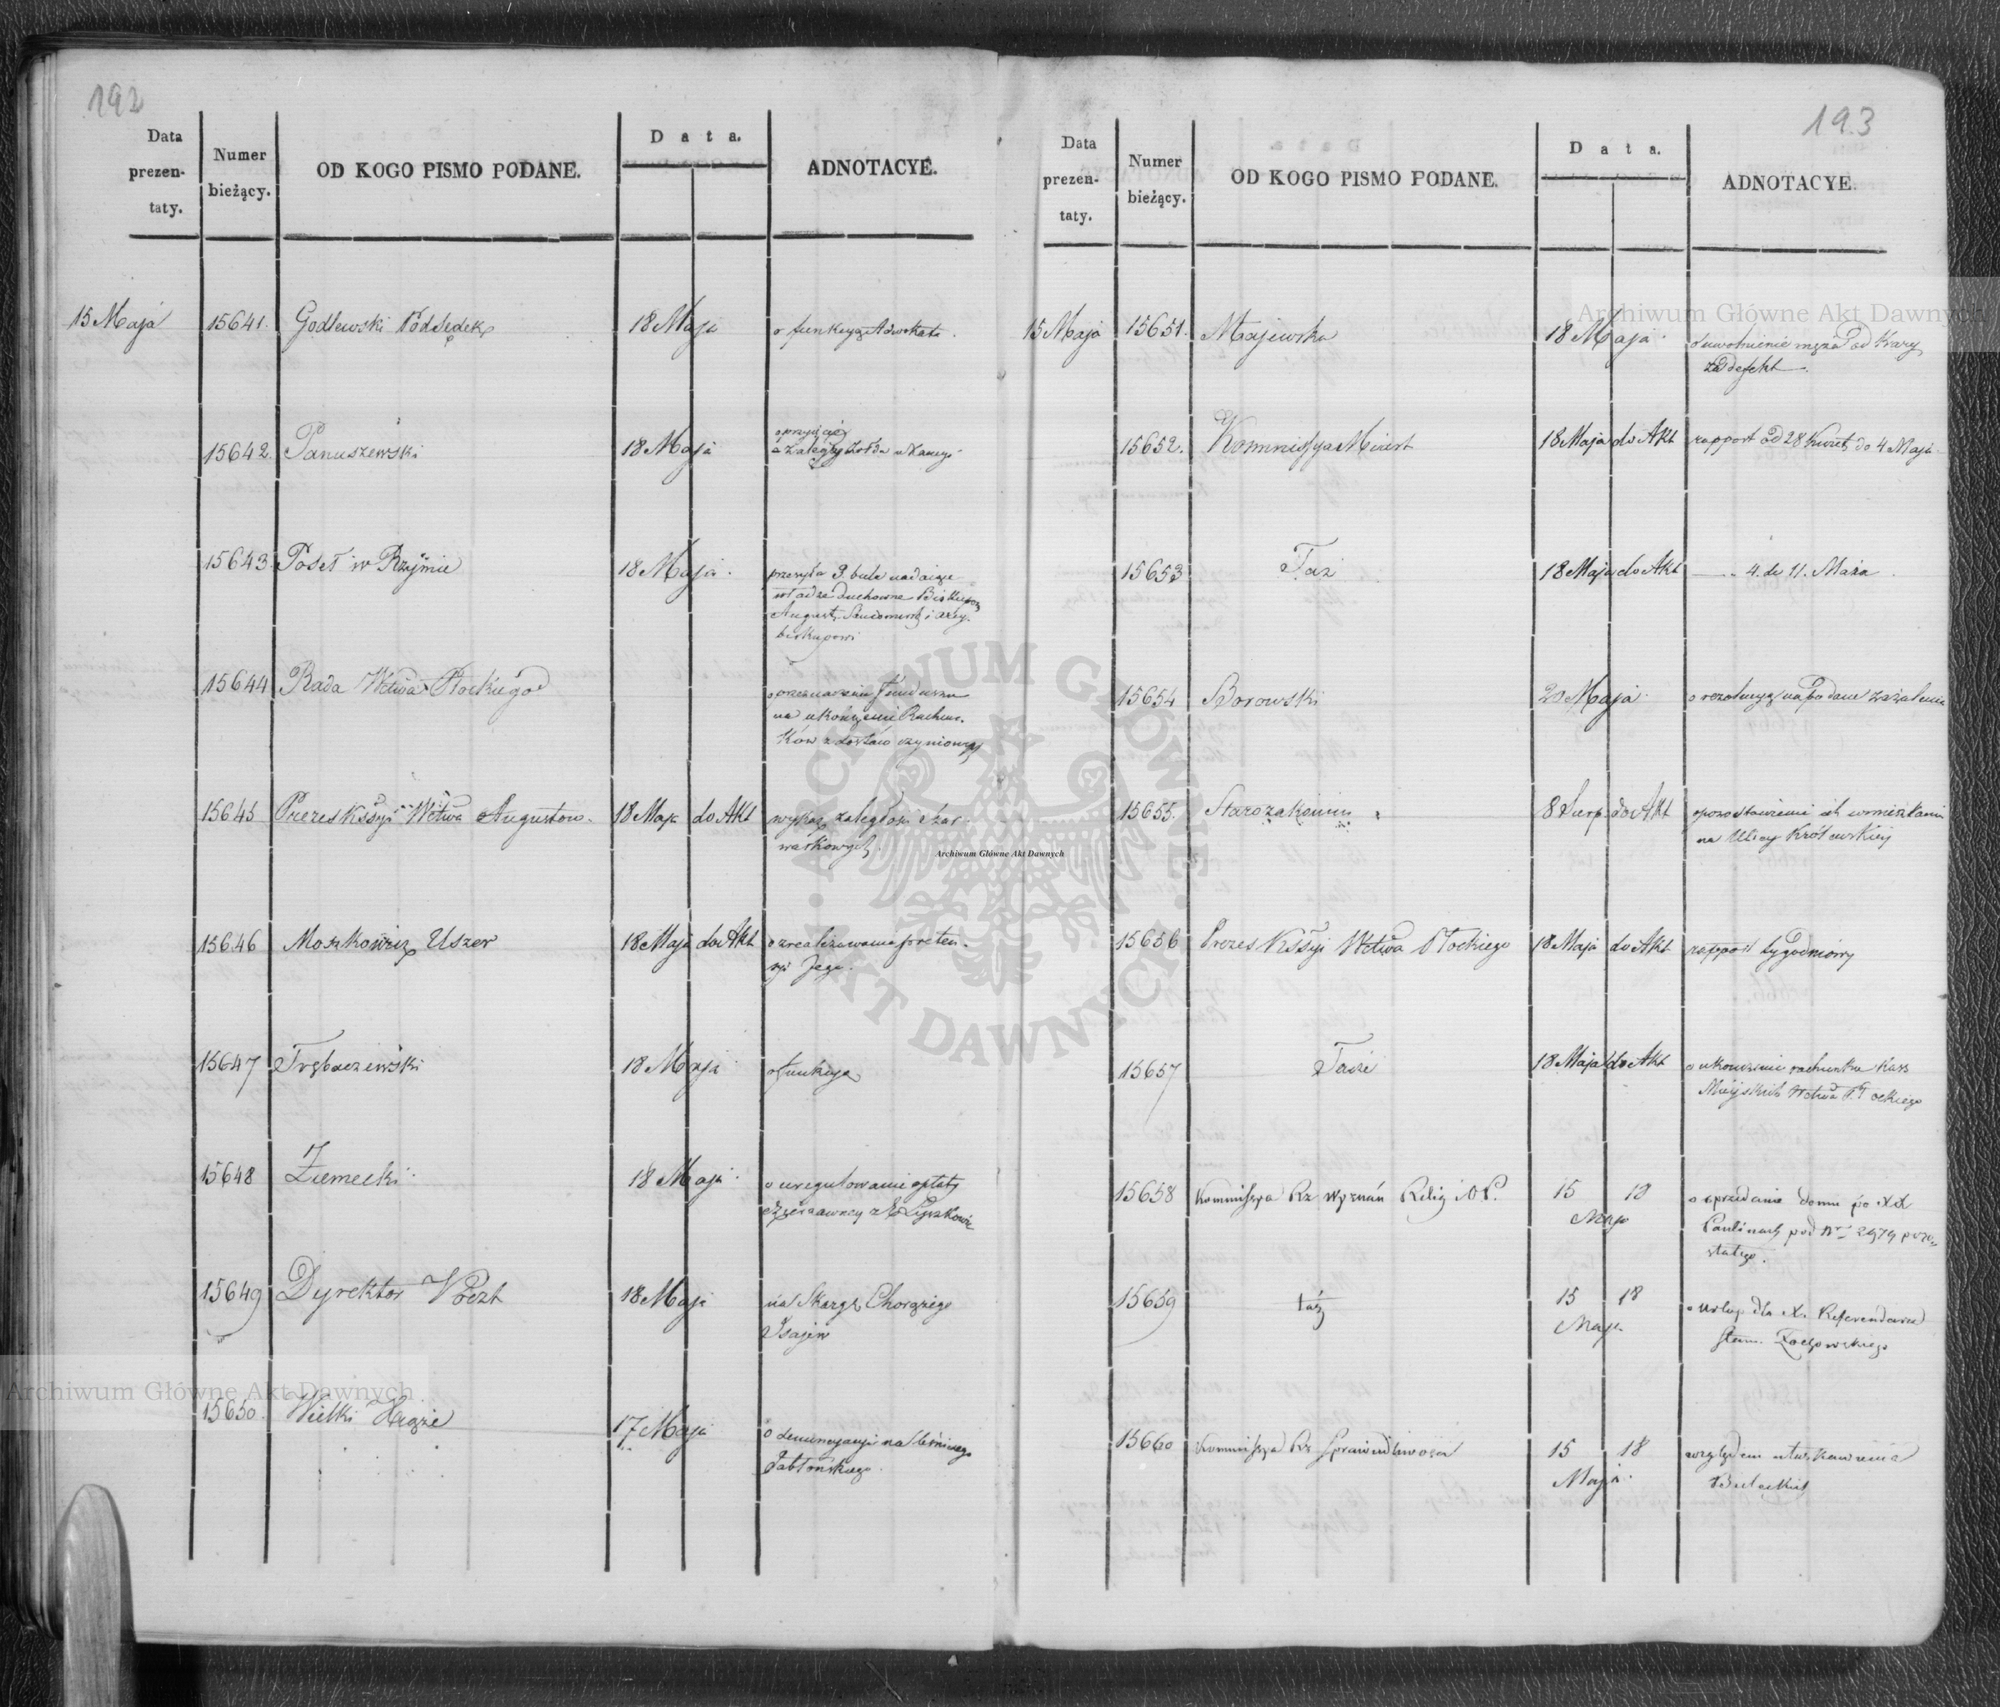 192
Data prezentaty.
Numer bieżący.
OD KOGO PISMO PODANE.
Data.
ADNOTACYE.
15 Maja 15641. Godlewski Podsędek 18 Maja o funkcyę Adwokata.
15642 Panuszewski 18 Maja
15643. Poseł w Rzymie 18 Maja. przesyła 3. bule nadające
władze duchowne Biskupom
August. Sandomirsk i Arcy-
biskupowi
15644 Rada Wctwa Płockiego o przeznaczeniu funduszu
na ukończenie Rachun-
ków z dostaw czynionych
15645 Prezes Kssyi Wctwa Augustow. 18 Maja do Akt wykaz zaległości Szar-
warkowych.
15646 Moszkowicz Uszer 18 Maja do Akt o zrealizowanie preten-
syi Jego.
15647 Trębaczewski 18 Maja o funkcyę
15648 Ziemecki 18 Maja o uregulowanie opłaty
dzierżawcy z
15649 Dyrektor Poczt 18 Maja na Skargę Chorążego
Isajew
15650. Wielki Xiążę 17 Maja o denuncyacyi na leśniczego
Jabłońskiego.
193
Data prezentaty.
Numer bieżący.
OD KOGO PISMO PODANE.
Data.
ADNOTACYE.
15 Maja 15651. Majewska 18 Maja o uwolnienie męża od Kary
za defekt.
15652. Kommissya Miast 18 Maja do Akt rapport od 28 Kwiet. do 4 Maja.
15653 Taż 18 Maja do Akt —— 4. do 11. Maja
15654 Borowski 20 Maja o rezolucyę na podane zażalenie
15655. Starozakonni 8 Sierp. do Akt o pozostawienie ich w mieszkaniu
na Ulicy Królewskiej
15656 Prezes Kssyi Wctwa Płockiego 18 Maja do Akt rapport tygodniowy
15657 Tenże 18 Maja do Akt o ukończenie rachunków Kass
Miejskich Wctwa Płockiego
15658 Kommissya Rz Wyznań Relig i O P. 15 Maja 18 o sprzedanie domu po XX
Paulinach pod Nr 2979 pozo-
stałego.
15659 taż 15 Maja 18 o Urlop dla X. Referendarza
15660 Kommissya Rz Sprawiedliwości 15 Maja 18 względem ułaskawienia
Archiwum Główne Akt Dawnych
Archiwum Główne Akt Dawnych
Archiwum Główne Akt Dawnych
ARCHIWUM GŁÓWNE AKT DAWNYCH